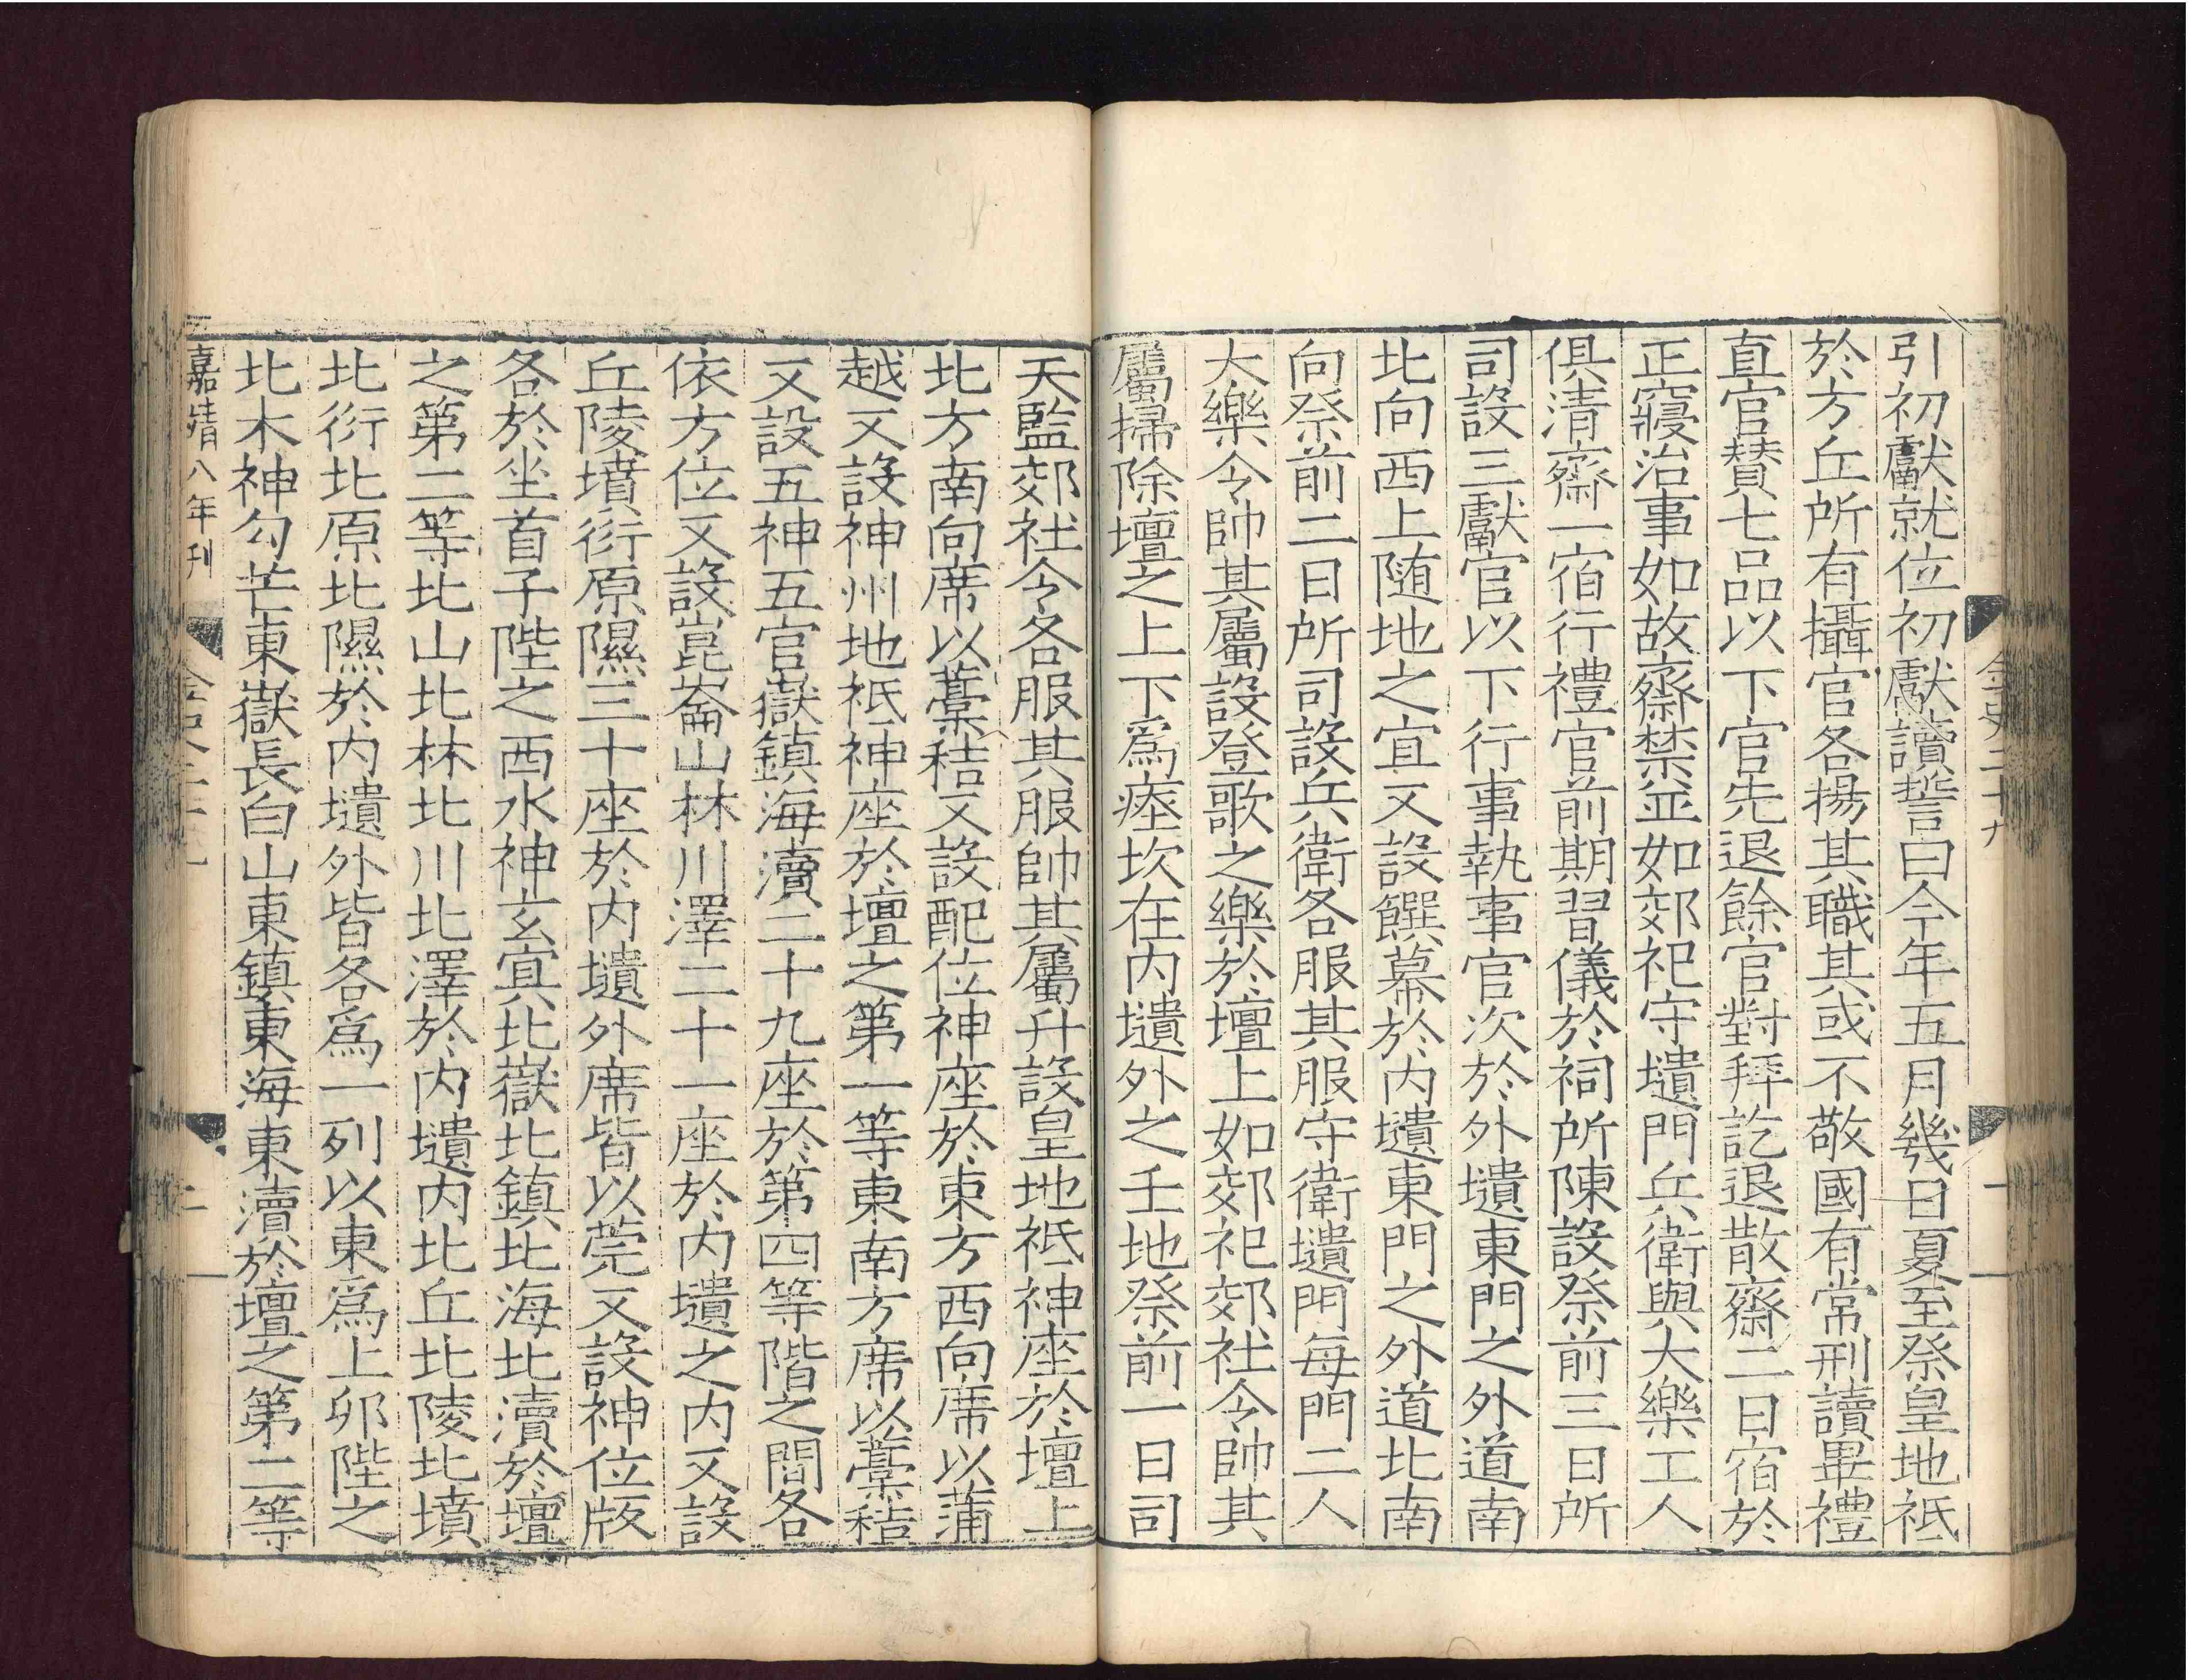 引初獻就位初獻讀誓曰今年五月幾日夏至祭皇地祇
於方丘所有攝官各揚其職其或不敬國有常刑讀畢禮
直官贊七品以下官先退餘官對拜訖退散齋二日宿於
正寢治事如故齋禁並如郊祀守壝門兵衛與大樂工人
俱清齋一宿行禮官前期習儀於祠所陳設祭前三日所
司設三獻官以下行事執事官次於外壝東門之外道南
北向西上随地之宜又設饌幕於内壝東門之外道北南
向祭前二日所司設兵衛各服其服守衛壝門每門二人
大樂令帥其屬設登歌之樂於壇上如郊祀郊社令帥其
屬掃除壇之上下爲瘞坎在内壝外之壬地祭前一日司
天監郊社令各服其服帥其屬升設皇地祇神座於壇上
北方南向席以藁秸又設配位神座於東方西向席以蒲
越又設神州地祇神座於壇之第一等東南方席以藁秸
又設五神五官嶽鎮海瀆二十九座於第四等階之間各
依方位又設崑崙山林川澤二十一座於内壝之内又設
丘陵墳衍原隰三十座於内壝外席皆以莞又設神位版
各於坐首子陛之西水神玄冥北嶽北鎮北海北瀆於壇
之第二等北山北林北川北澤於内壝内北丘北陵北墳
北衍北原北隰於内壝外皆各爲一列以東爲上卯陛之
北木神勾芒東嶽長白山東鎮東海東瀆於壇之第二等
嘉靖八年刊